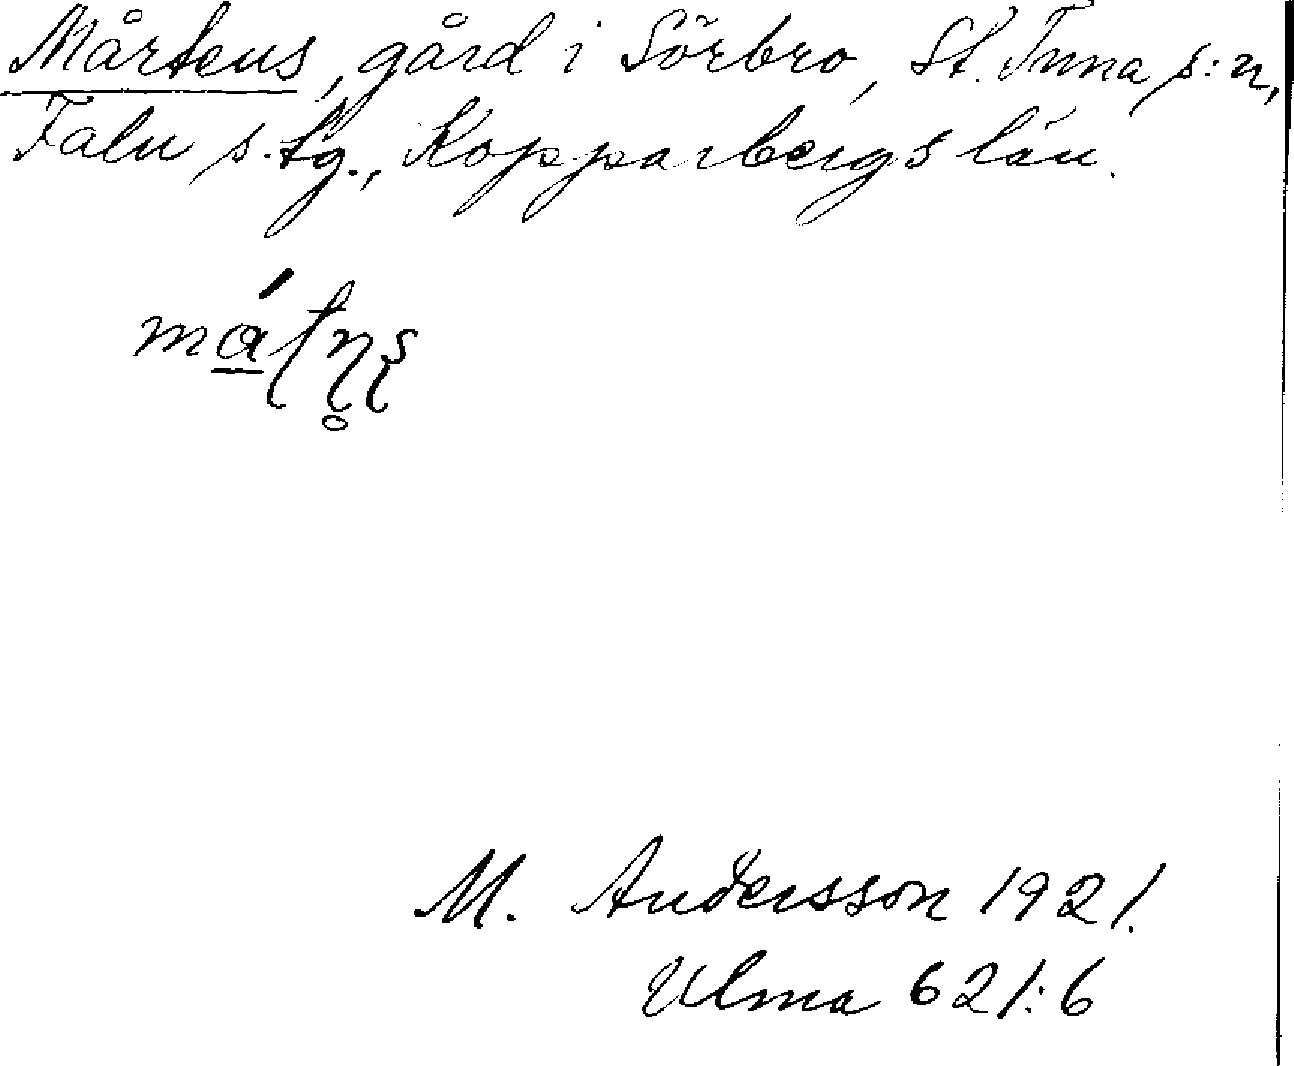 Mårtens, gård i Sörbro, St. Tuna s:n,
Falu s. fg., Kopparbergs län.
má̱ʈn̢̥ʂ
M. Andersson 1921.
Ulma 621:6